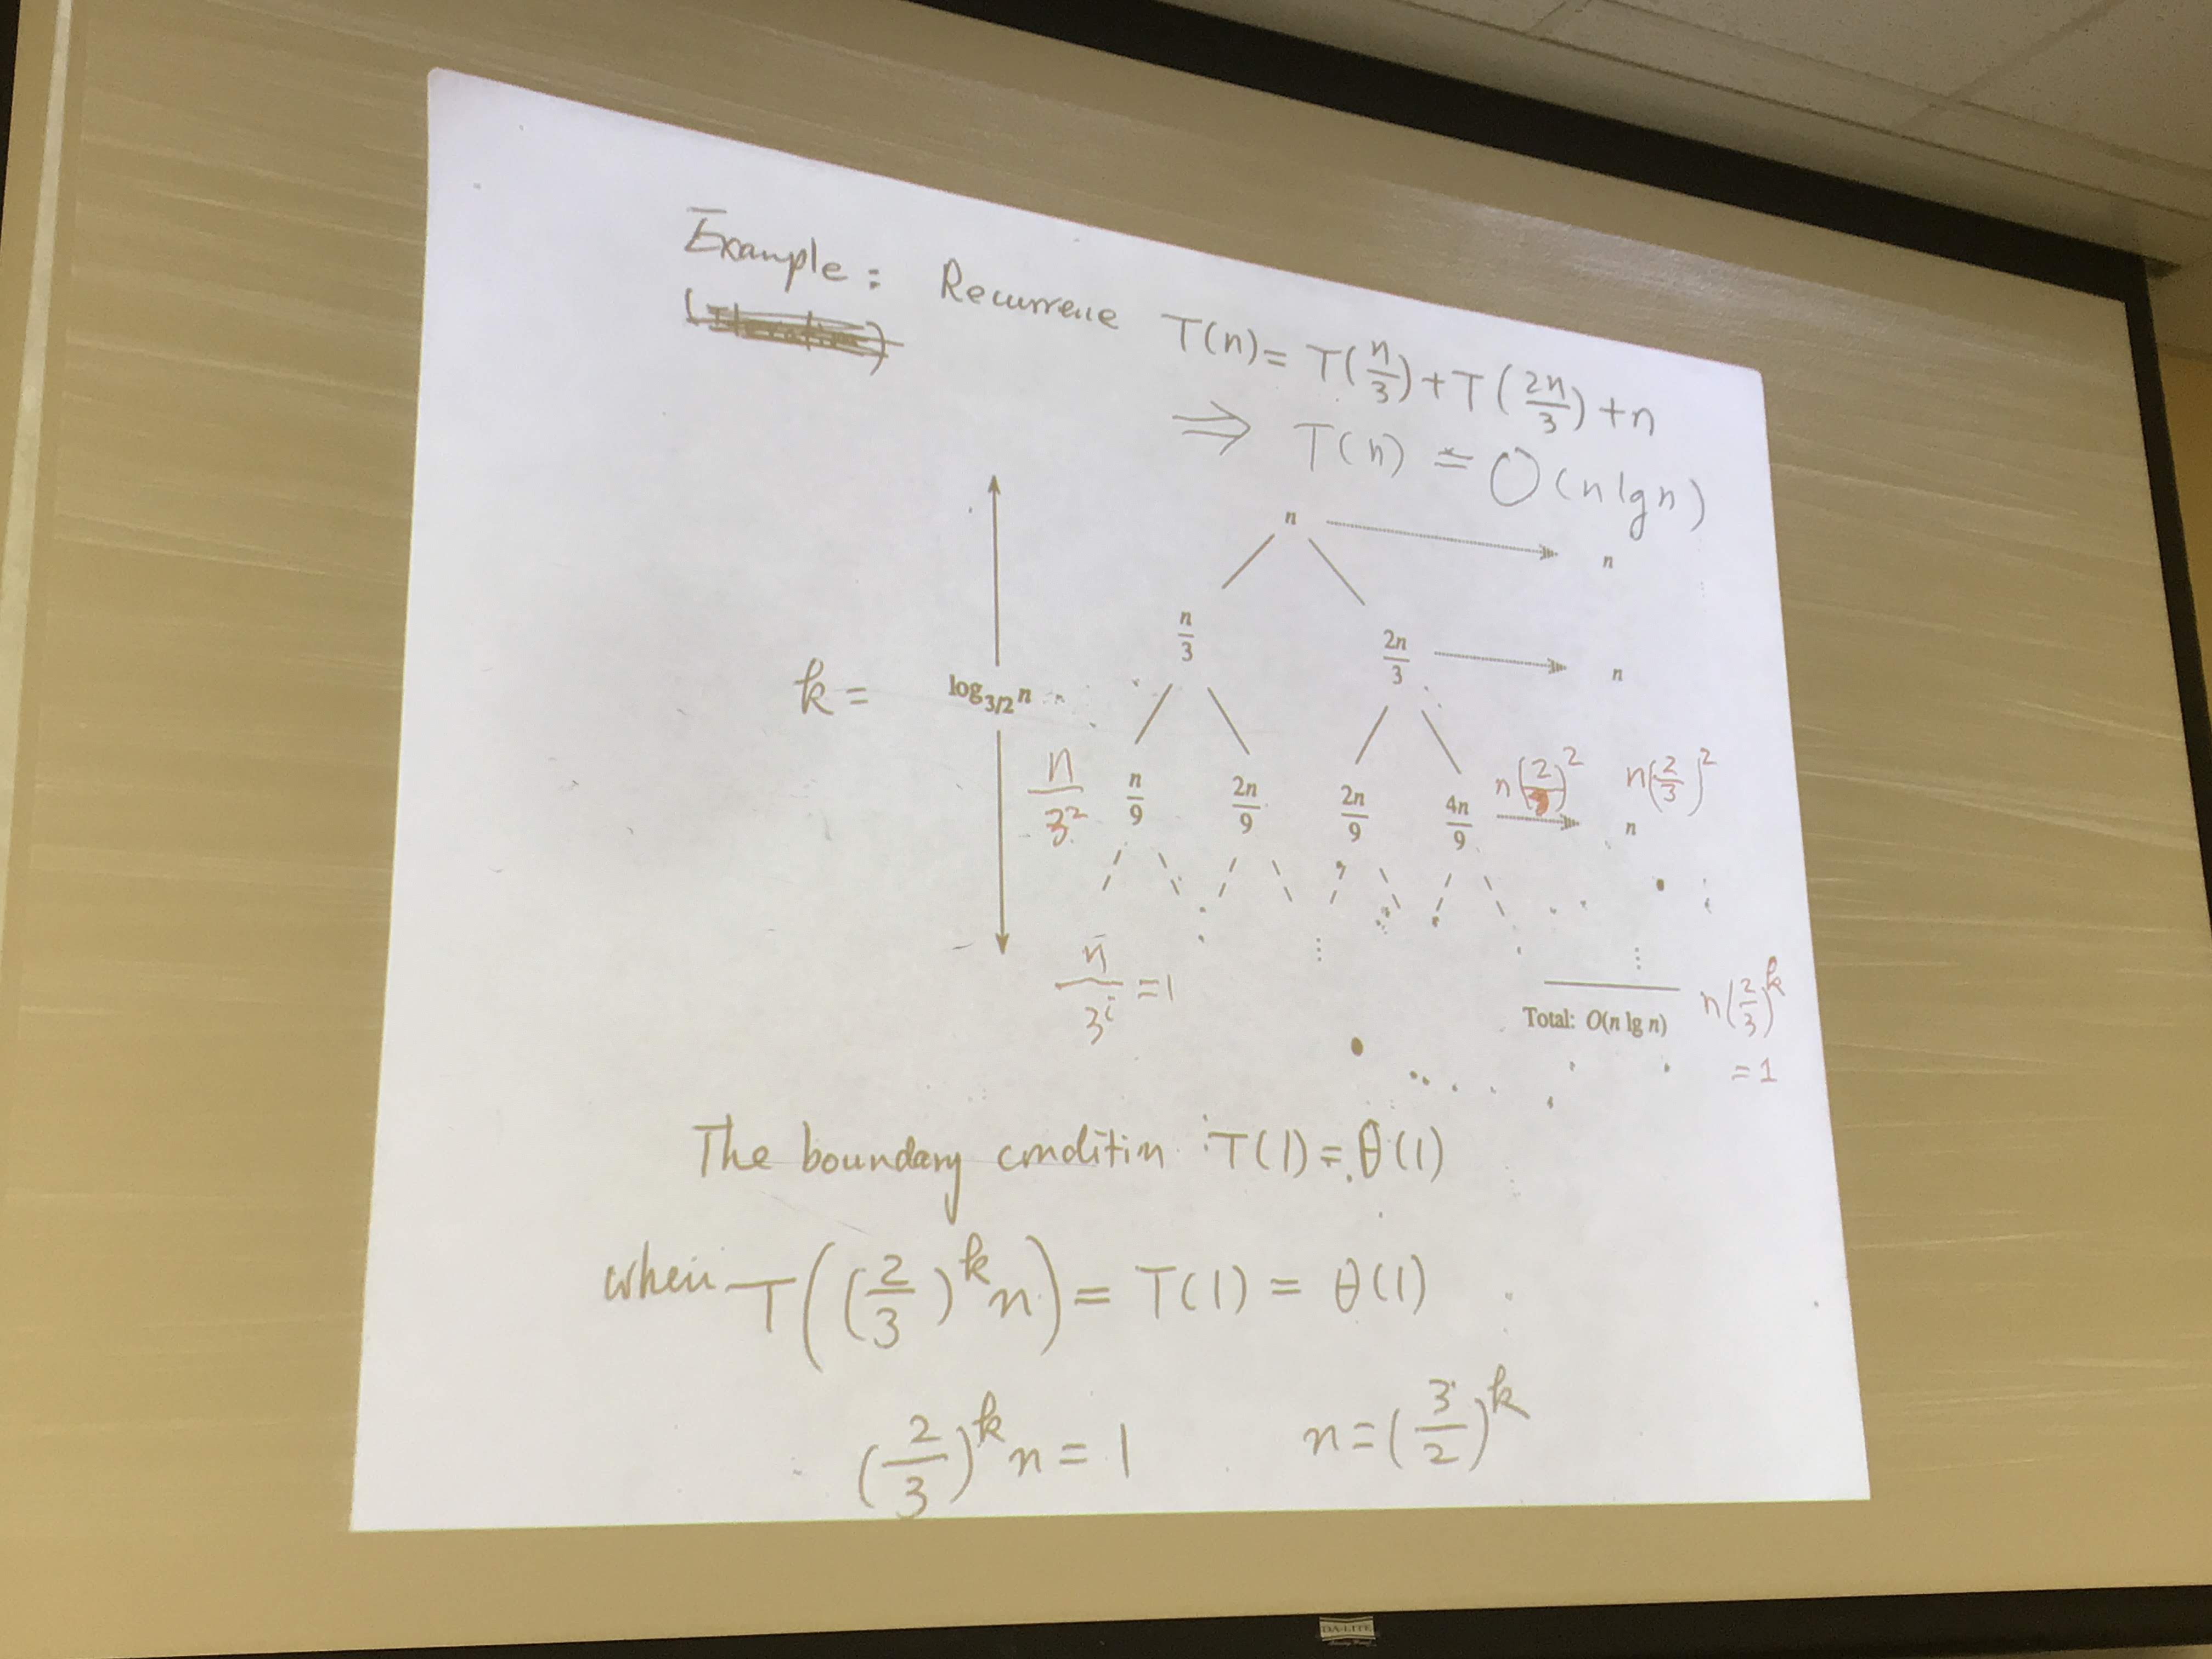 Example: Recurrene T(n) = T(n/3) + T(2n/3) + n
(Iteration)
⇒ T(n) = O(n lg n)
n → n
n/3 2n/3 → n
k = log_{3/2} n
n/3^2 n/9 2n/9 2n/9 4n/9 n(2/3)^2 → n n(2/3)^2
⋮ ⋮
n/3^i = 1
Total: O(n lg n) n(2/3)^k
= 1
The boundary condition T(1) = θ(1)
when T((2/3)^k n) = T(1) = θ(1)
(2/3)^k n = 1 n = (3/2)^k
DA-LITE